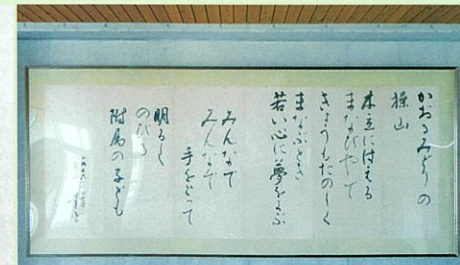 かおるみどりの
操山
木立にはえる
まなびやで
きょうもたのしく
まなぶとき
若い心に夢をよぶ
みんなで
みんなで
手をとって
明るく
のびる
附属の子ども